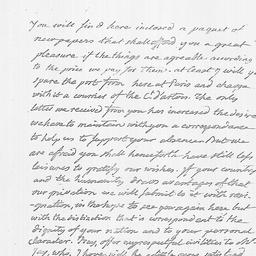 You will find here inclosed a paquet of
newspapers that shall afford you a great
pleasure if the things are agreable. according
to the price we pay for them. at least I will you
spare the port from here at Paris and charge
with it a courier of the C. d'Artois. the only
letter we received from you has increased the desire
we have to maintain with you a correspondance
to help us to support your absence. But we
are afraid you shall henceforth have still less
leisures to gratify our wishes. If your country
and the humanity draws advantages of that
our privation we will submit to it with resi-
gnation, in the hope to see you again here but
with the distinction that is correspondent to the
dignity of your nation and to your personal
character. Pray, offer my respectful civilities to Mr
Jay, who, I hope will be